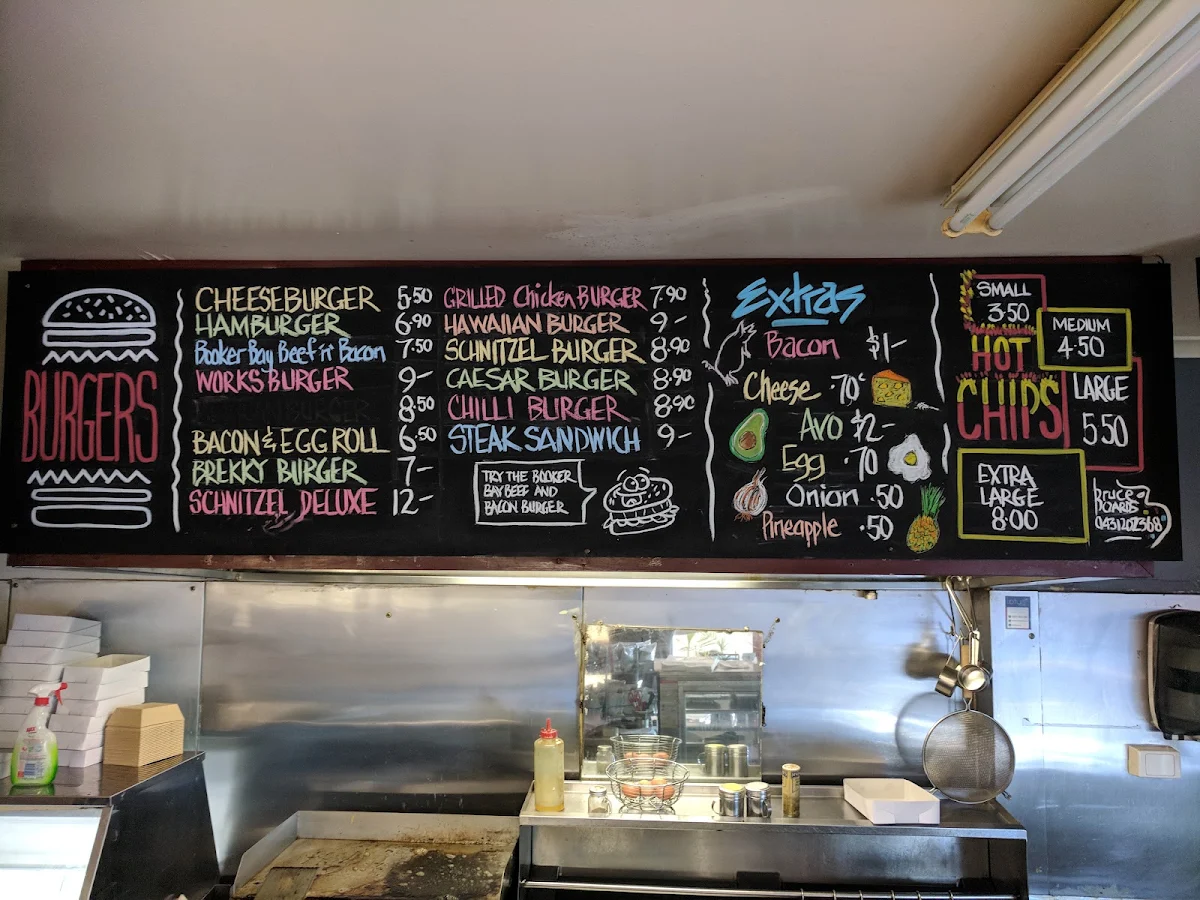 BURGERS
CHEESEBURGER 5.50
HAMBURGER 6.90
Booker Bay Beef 'n' Bacon 7.50
WORKS BURGER 9-
BURGER 8.50
BACON & EGG ROLL 6.50
BREKKY BURGER 7-
SCHNITZEL DELUXE 12-
GRILLED Chicken BURGER 7.90
HAWAIIAN BURGER 9-
SCHNITZEL BURGER 8.90
CAESAR BURGER 8.90
CHILLI BURGER 8.90
STEAK SANDWICH 9-
TRY THE BOOKER
BAY BEEF AND
BACON BURGER
Extras
Bacon $1-
Cheese .70¢
Avo $2-
Egg .70
Onion .50
Pineapple .50
HOT
CHIPS
SMALL
3.50
MEDIUM
4.50
LARGE
5.50
EXTRA
LARGE
8.00
bruce
BOARDS
0431202368